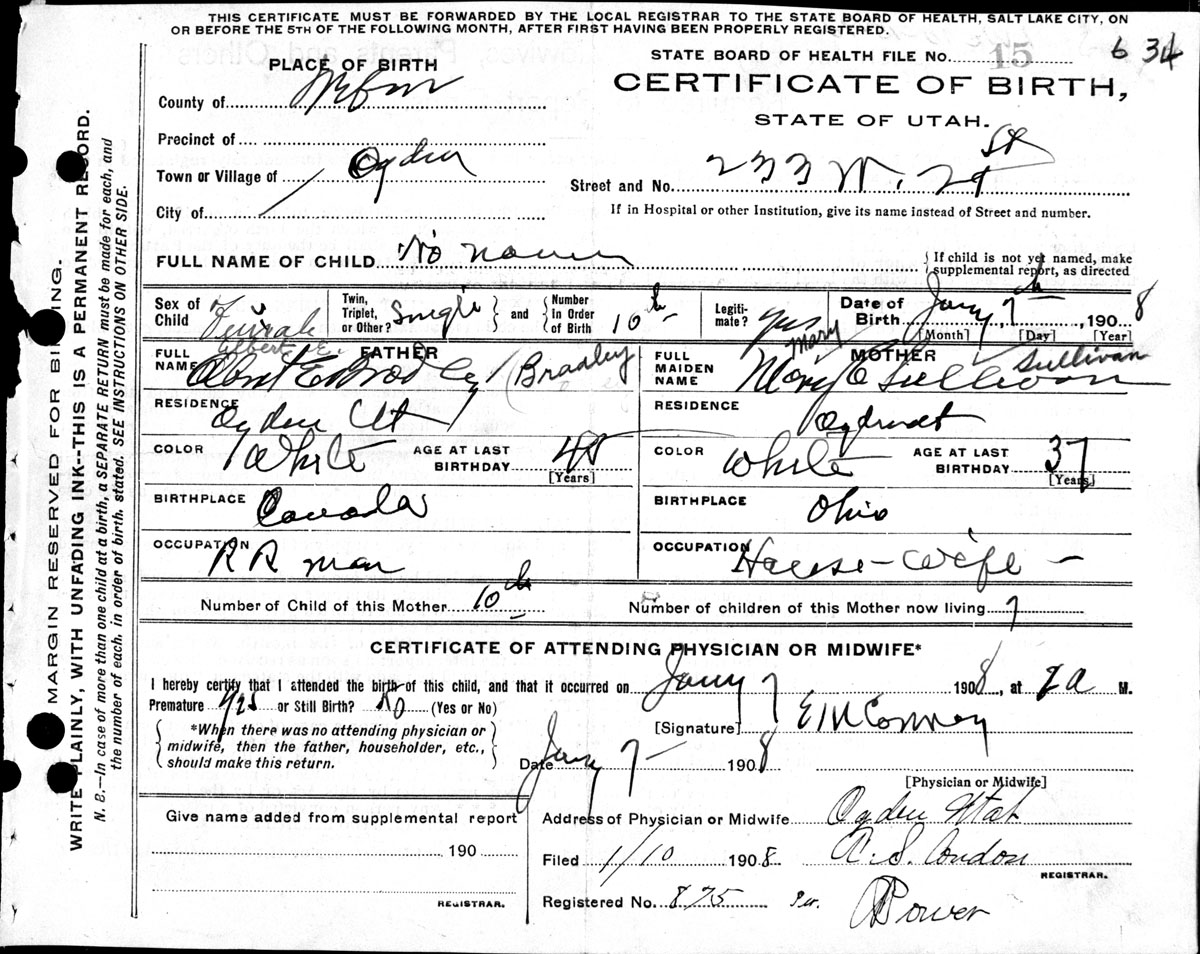 THIS CERTIFICATE MUST BE FORWARDED BY THE LOCAL REGISTRAR TO THE STATE BOARD OF HEALTH, SALT LAKE CITY, ON
OR BEFORE THE 5TH OF THE FOLLOWING MONTH, AFTER FIRST HAVING BEEN PROPERLY REGISTERED.
STATE BOARD OF HEALTH FILE No. 15 634
PLACE OF BIRTH
CERTIFICATE OF BIRTH,
STATE OF UTAH.
County of
Precinct of
Town or Village of Ogden
City of
Street and No. 233 W. 2
If in Hospital or other Institution, give its name instead of Street and number.
FULL NAME OF CHILD No name
{ If child is not yet named, make
supplemental report, as directed
Sex of Child Female
Twin, Triplet, or Other? Single } and { Number In Order of Birth 10th
Legitimate? Yes
Date of Birth Jany 7th, 1908
[Month] [Day] [Year]
FATHER
FULL NAME Albert E. Bradley (Bradley
RESIDENCE Ogden Ut
COLOR White
AGE AT LAST BIRTHDAY 45
[Years]
BIRTHPLACE Canada
OCCUPATION R R man
MOTHER
FULL MAIDEN NAME Mary O Sullivan Mary Sullivan
RESIDENCE Ogden Ut
COLOR White
AGE AT LAST BIRTHDAY 37
[Years]
BIRTHPLACE Ohio
OCCUPATION House-wife
Number of Child of this Mother 10th
Number of children of this Mother now living 7
CERTIFICATE OF ATTENDING PHYSICIAN OR MIDWIFE*
I hereby certify that I attended the birth of this child, and that it occurred on Jany 7 1908, at 2 a M.
Premature yes or Still Birth? No (Yes or No)
{ *When there was no attending physician or
midwife, then the father, householder, etc.,
should make this return. }
[Signature] E M Conroy
Date Jany 7 1908
[Physician or Midwife]
Give name added from supplemental report
190
REGISTRAR.
Address of Physician or Midwife Ogden Utah
Filed 1/10 1908 C. S. Condon
REGISTRAR.
Registered No. 875 Per. Power
MARGIN RESERVED FOR BINDING.
WRITE PLAINLY, WITH UNFADING INK--THIS IS A PERMANENT RECORD.
N. B.—In case of more than one child at a birth, a SEPARATE RETURN must be made for each, and
the number of each, in order of birth, stated. SEE INSTRUCTIONS ON OTHER SIDE.